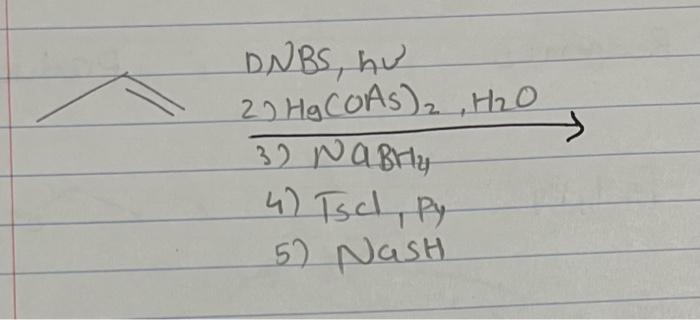 DNBS, hν
2) Hg(OAs)₂, H₂O
3) NaBH₄
4) Tscl, Py
5) NaSH